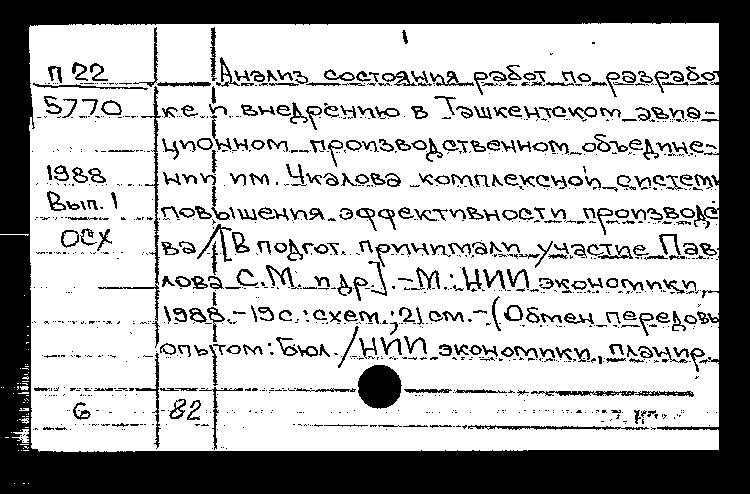 П 22
Анализ состояния работ по разработ
5770
ке и внедрению в Ташкентском авиа-
ционном производственном объедине-
1988
нии им. Чкалова комплексной систем
Вып. 1
повышения эффективности производс
ОСХ
ва/[В подгот. принимали участие Пав
лова С.М. и др.].-М.: НИИ экономики,
1988.-19с.:схем.; 21см.-(Обмен передовы
опытом: Бюл./НИИ экономики, планир.
6
82